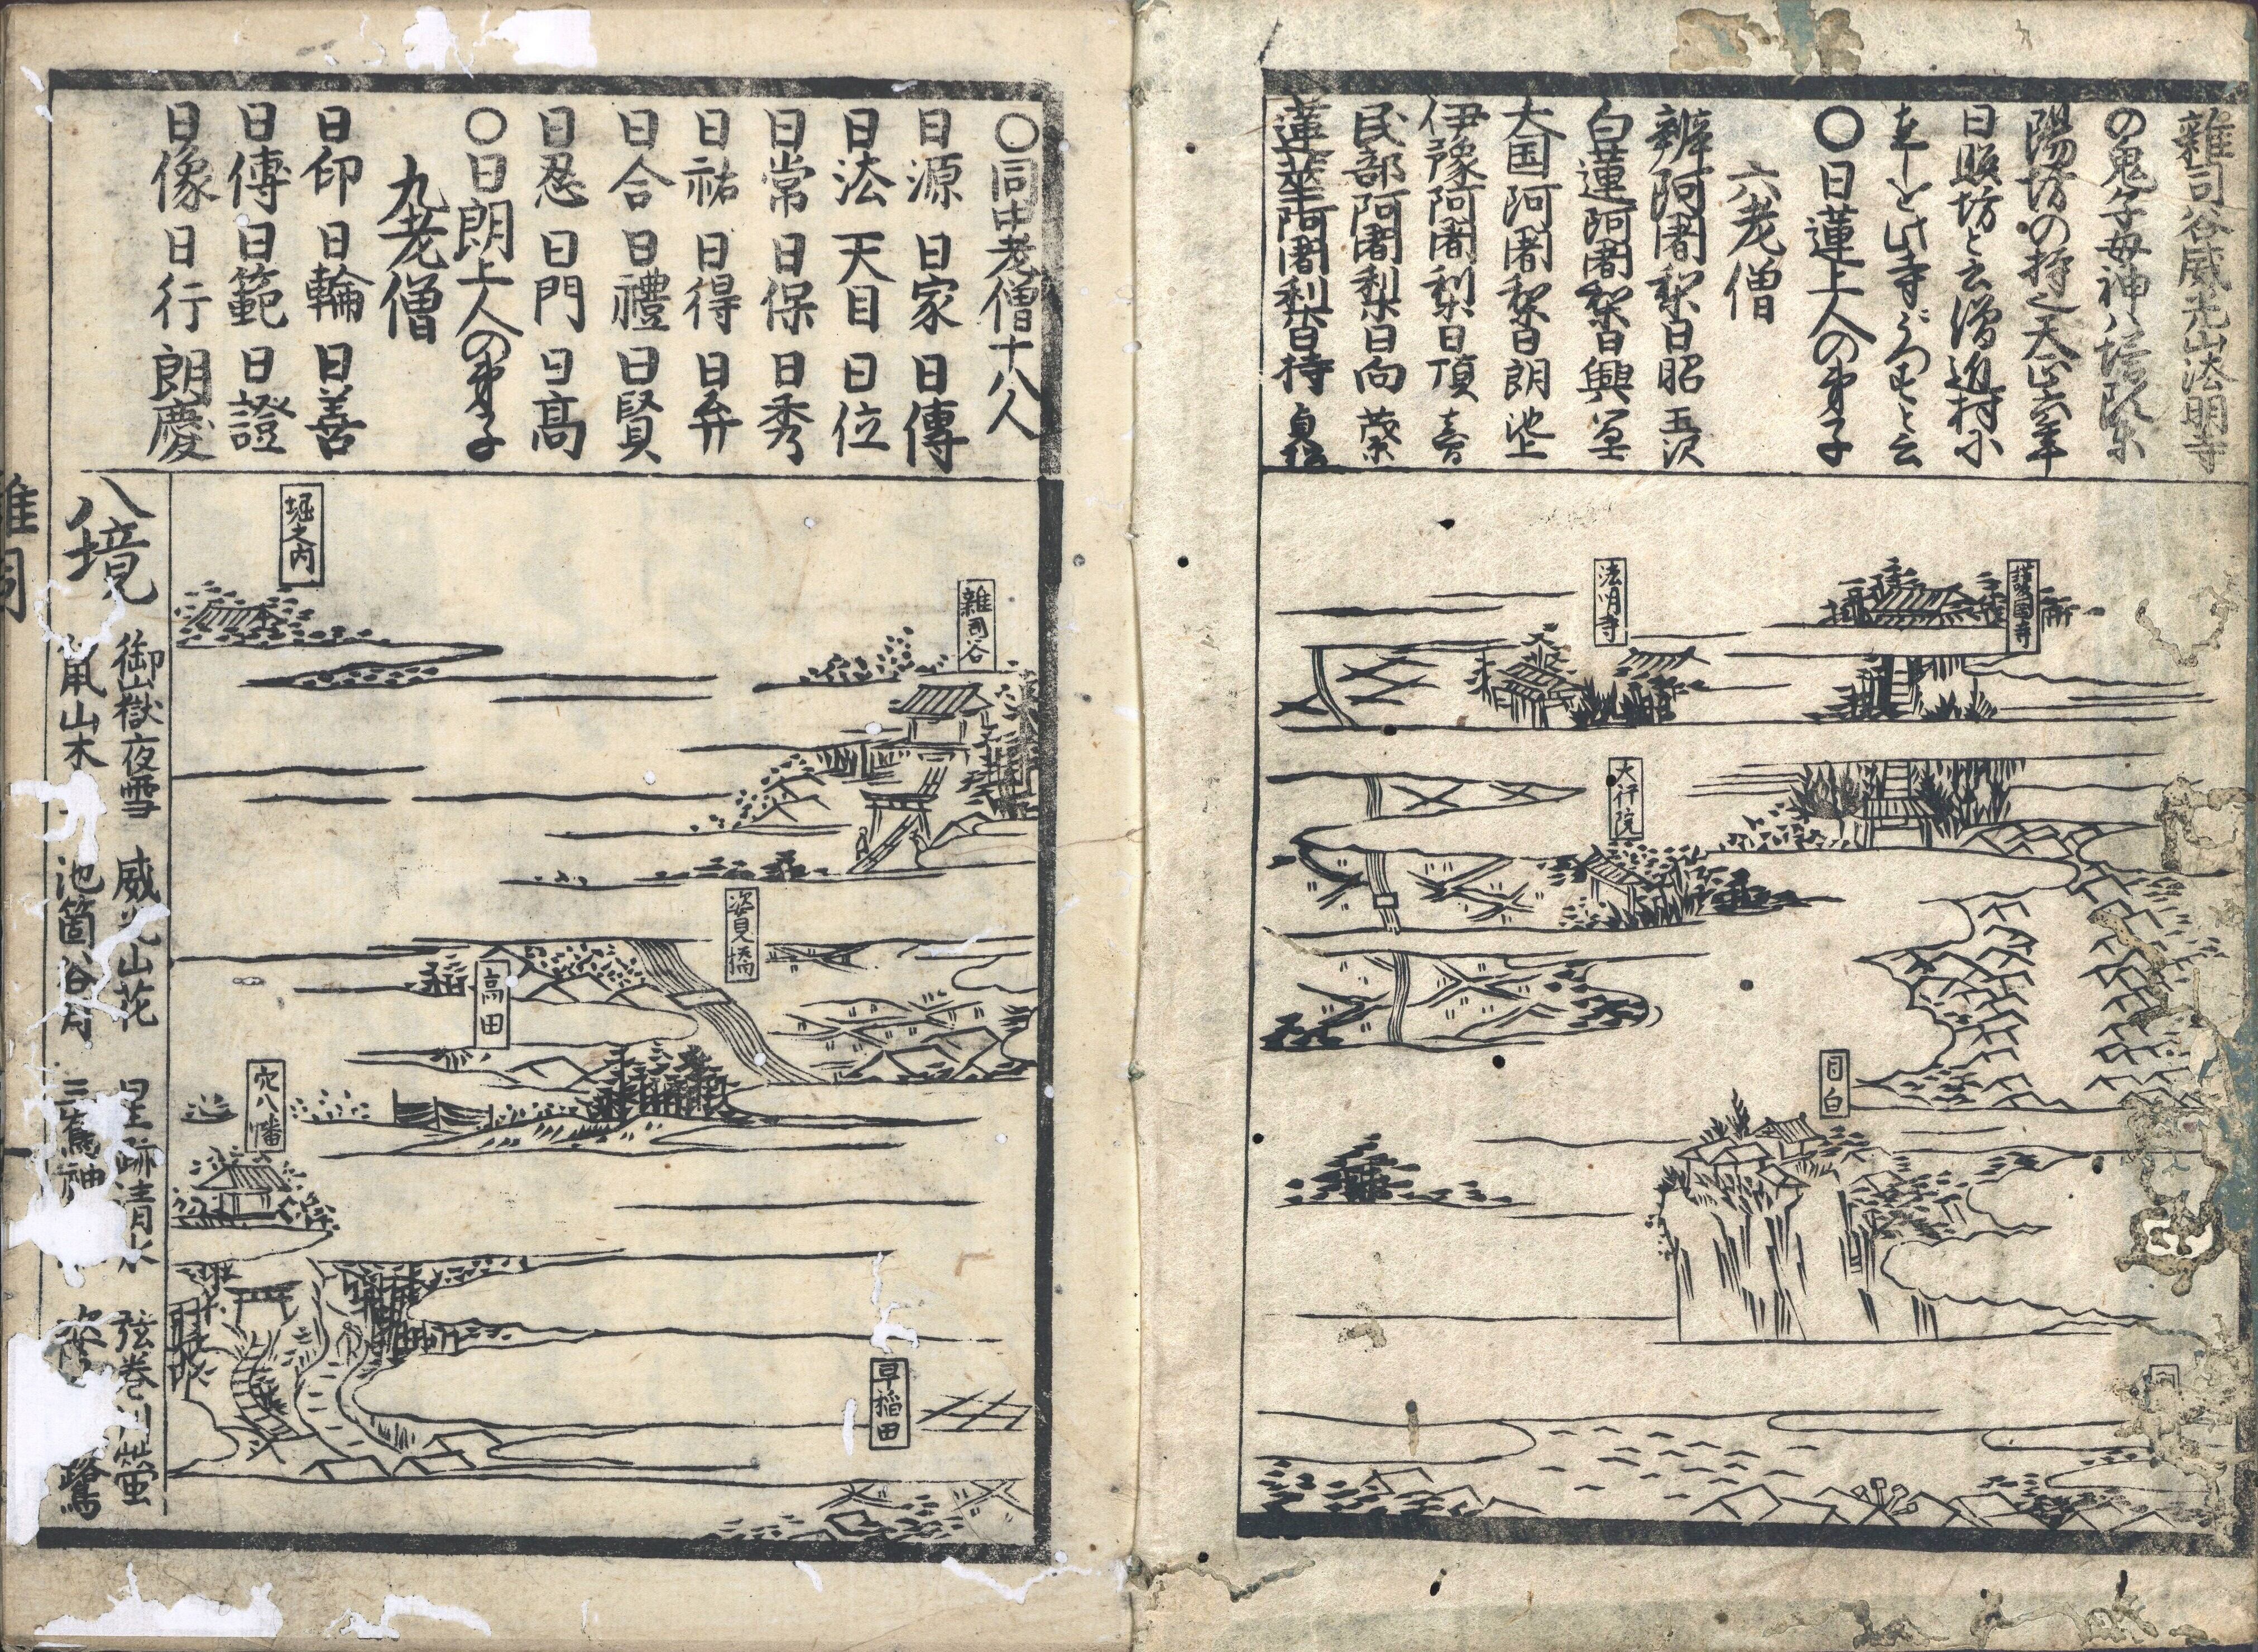 雑司谷威光山法明寺
の鬼子母神ハ塔頭東
陽坊の持也天正六年
日暎坊と云僧近村に
在しを此寺
〇日蓮上人の弟子
六老僧
辨阿闍梨日昭 玉沢
白蓮阿闍梨日興
大国阿闍梨日朗 池上
伊豫阿闍梨日頂
民部阿闍梨日向 藻
蓮華阿闍梨日持 貞松
護国寺
法明寺
大行院
目白
同
〇同中老僧十八人
日源 日家 日傳
日法 天目 日位
日常 日保 日秀
日祐 日得 日弁
日合 日禮 日賢
日忍 日門 日高
〇日朗上人の弟子
九老僧
日印 日輪 日善
日傳 日範 日證
日像 日行 朗慶
雑司谷
堀之内
姿見橋
高田
穴八幡
早稲田
八境
御嶽夜雪 威光山花 星跡清水 弦巻川蛍
鼠山木 池箇谷月 三 神 鶯
雑司